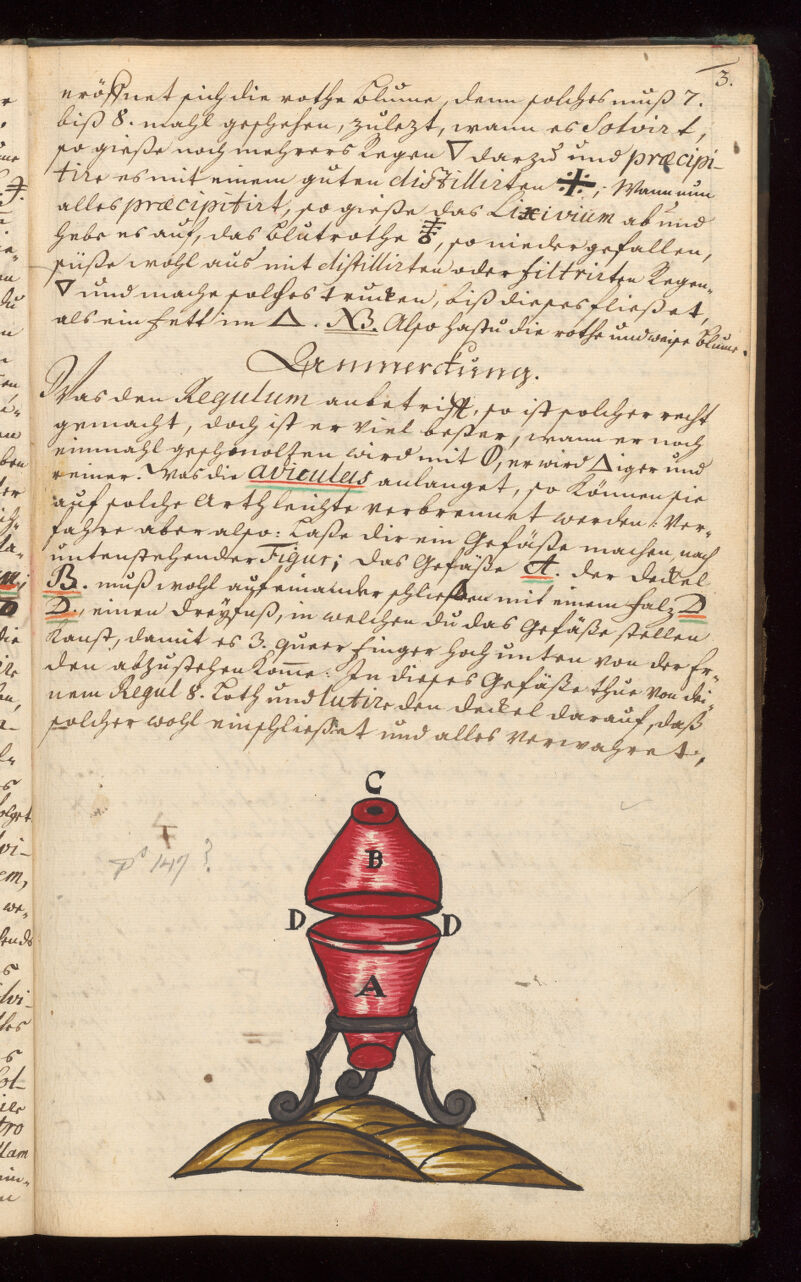 3.
eröffnet sich die rothe Blume, denn solches muß 7.
biß 8. mahl geschehen, zulezt, wann es Solvirt,
so gieße noch mehrers Regen ▽ darzu und præcipi-
tire es mit einem guten distillirten ·|·; Wann nun
alles præcipitirt, so gieße das Lixivium ab und
hebe es auf, das blutrothe, so niedergefallen,
süße wohl aus mit distillirten oder filtrirten Regen-
▽ und mache solches trucken, biß dieses fließet,
als ein fett im △. NB. Also hastu die rothe und weise Blume.
Anmerckung.
Was den Regulum anbetrifft, so ist solcher recht
gemacht, doch ist er viel beßer, wann er noch
einmahl geschmolzen wird mit, er wird △iger und
reiner. Was die aviculas anlanget, so können sie
auf solche Arth leichte verbrennet werden: Ver-
fahre aber also: Laße dir ein Gefäße machen, nach
untenstehender Figur; das Gefäße A. der Deckel
B. muß wohl aufeinander schließen mit einem falz D
D., einen Dreyfuß, in welchen du das Gefäße stellen
kanst, damit es 3. queer finger hoch unten von der Er-
den abzustehen kome: In dieses Gefäße thue von dei-
nem Regul 8. Loth und lutire den Deckel darauf, daß
solcher wohl einschließet und alles verwahret,
C
B
D D
A
p 147 ?